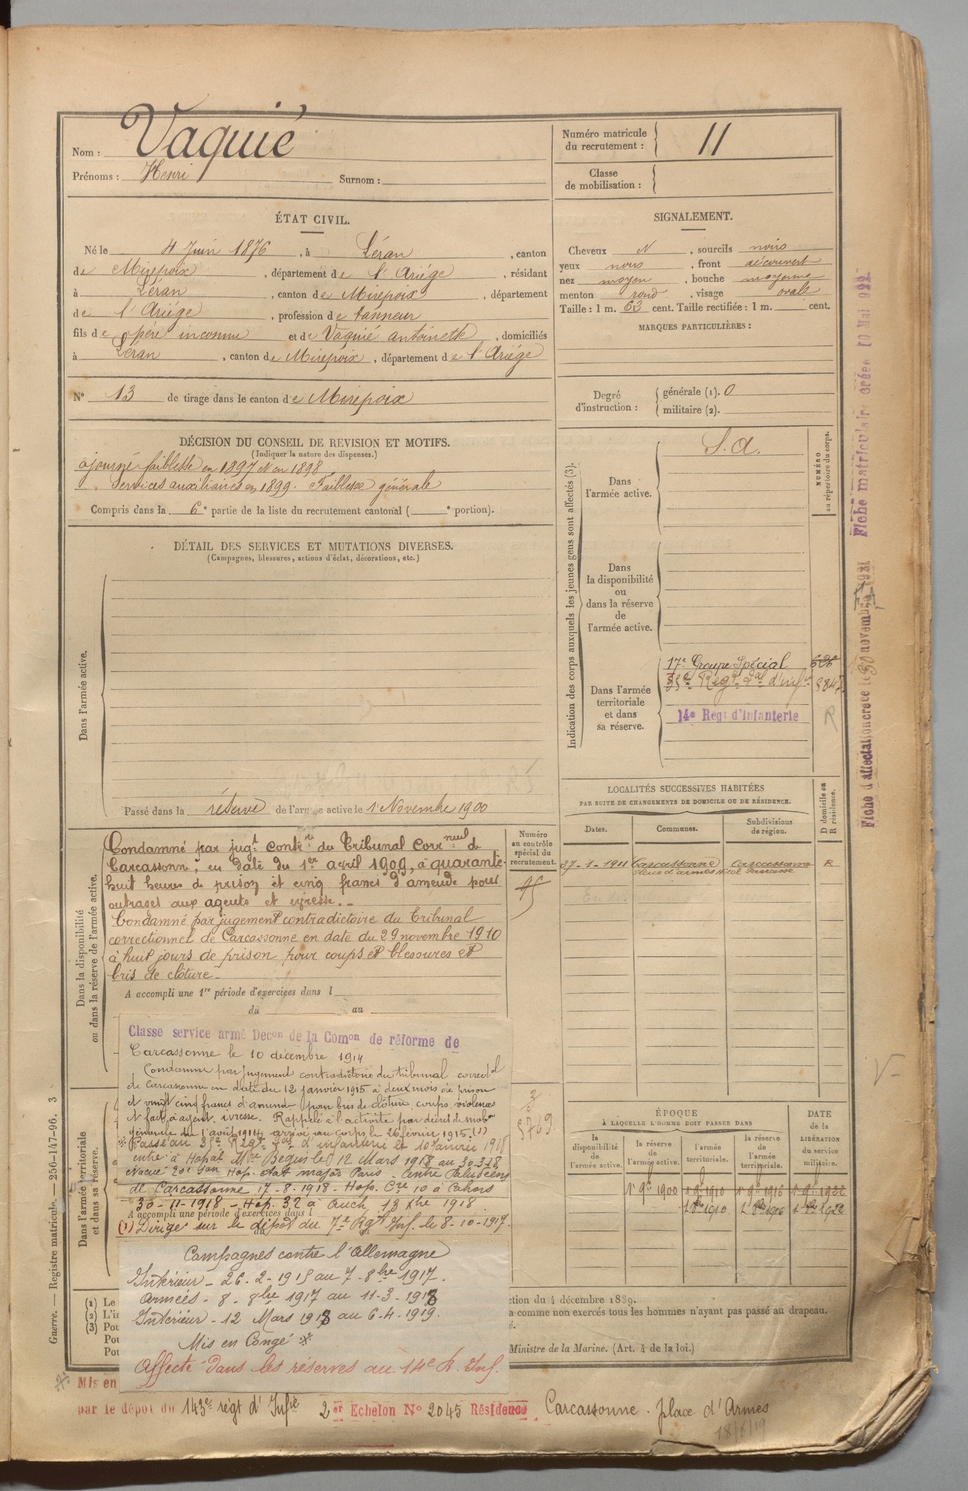 Nom : Vaquié
Prénoms : Henri Surnom :
Numéro matricule du recrutement : 11
Classe de mobilisation :
ÉTAT CIVIL.
Né le 4 Juin 1876, à Léran, canton
de Mirepoix, département de l'Ariége, résidant
à Léran, canton de Mirepoix, département
de l'Ariége, profession de tanneur
fils de père inconnu et de Vaquié antoinette, domiciliés
à Léran, canton de Mirepoix, département de l'Ariége
N° 13 de tirage dans le canton de Mirepoix
SIGNALEMENT.
Cheveux N, sourcils noirs
yeux noirs, front découvert
nez moyen, bouche moyenne
menton rond, visage ovale
Taille : 1 m. 62 cent. Taille rectifiée : 1 m. cent.
MARQUES PARTICULIÈRES :
Degré d'instruction : générale (1). 0
militaire (2).
DÉCISION DU CONSEIL DE REVISION ET MOTIFS.
(Indiquer la nature des dispenses.)
ajourné faiblesse en 1897 et en 1898
Services auxiliaires en 1899. Faiblesse générale
Compris dans la 6e partie de la liste du recrutement cantonal ( e portion).
DÉTAIL DES SERVICES ET MUTATIONS DIVERSES.
(Campagnes, blessures, actions d'éclat, décorations, etc.)
Dans l'armée active.
Passé dans la réserve de l'armée active le 1 Novembre 1900
Indication des corps auxquels les jeunes gens sont affectés (3).
NUMÉRO au répertoire du corps.
Dans l'armée active.
S.A.
Dans la disponibilité ou dans la réserve de l'armée active.
Dans l'armée territoriale et dans sa réserve.
17e Groupe Spécial
14e Regt d'Infanterie
R
Fiche matriculaire créée 10 Mai 922
Fiche d'affectation créée le 30 novembre 1921
LOCALITÉS SUCCESSIVES HABITÉES
PAR SUITE DE CHANGEMENTS DE DOMICILE OU DE RÉSIDENCE.
Dates. Communes. Subdivisions de région. D domicile ou R résidence.
27-1-1911 Carcassonne Carcassonne R
Dans la disponibilité ou dans la réserve de l'armée active.
Numéro au contrôle spécial du recrutement.
Condamné par jugt contre du Tribunal Corrnnel de
Carcassonne, en date du 1er avril 1909, à quarante
huit heures de prison et cinq francs d'amende pour
outrages aux agents et ivresse.
Condamné par jugement contradictoire du Tribunal
correctionnel de Carcassonne en date du 29 novembre 1910
à huit jours de prison pour coups et blessures et
bris de clôture.
A accompli une 1re période d'exercices dans l
du au
Classé service armé Decon de la Comon de réforme de
Carcassonne le 10 décembre 1914
Condamné par jugement contradictoire du tribunal correctel
de Carcassonne en date du 12 janvier 1915 à deux mois de prison
et vingt cinq francs d'amende pour bris de clôture coups violences
ivresse. Rappelé à l'activité par décret de mobon
générale du 1er août 1914 arrivé au corps le 26 février 1915. (1)
de Carcassonne 17-8-1918 - Hop. Cre 10 à Cahors
30-11-1918 - Hop. 32 à Auch 13 Xbre 1918
A accompli une période d'exercices dans l
(1) Dirigé sur le dépôt du 7e Rgt Inf. le 8-10-1917.
Dans l'armée territoriale et dans sa réserve.
Campagnes contre l'Allemagne
Intérieur - 26-2-1915 au 7-8bre 1917.
Armées - 8-8bre 1917 au 11-3-1918
Intérieur - 12 Mars 1918 au 6-4-1919.
Mis en Congé *
Affecté dans les réserves au 14e R. Inf.
ÉPOQUE
À LAQUELLE L'HOMME DOIT PASSER DANS
la disponibilité de l'armée active.
la réserve de l'armée active.
l'armée territoriale.
la réserve de l'armée territoriale.
DATE de la LIBÉRATION du service militaire.
1 9bre 1900 1 9bre 1910 1 9bre 1916 1 9bre 1922
(1) Le
(2) L'in
(3) Pou
Pou
Pou
ction du 4 décembre 1889.
a comme non exercés tous les hommes n'ayant pas passé au drapeau.
Ministre de la Marine. (Art. 4 de la loi.)
Guerre. — Registre matricule. — 256-147-96. 3
* Mis en
par le dépôt du 143e régt d'Infie 2er Echelon N° 2045 Résidence Carcassonne - place d'Armes